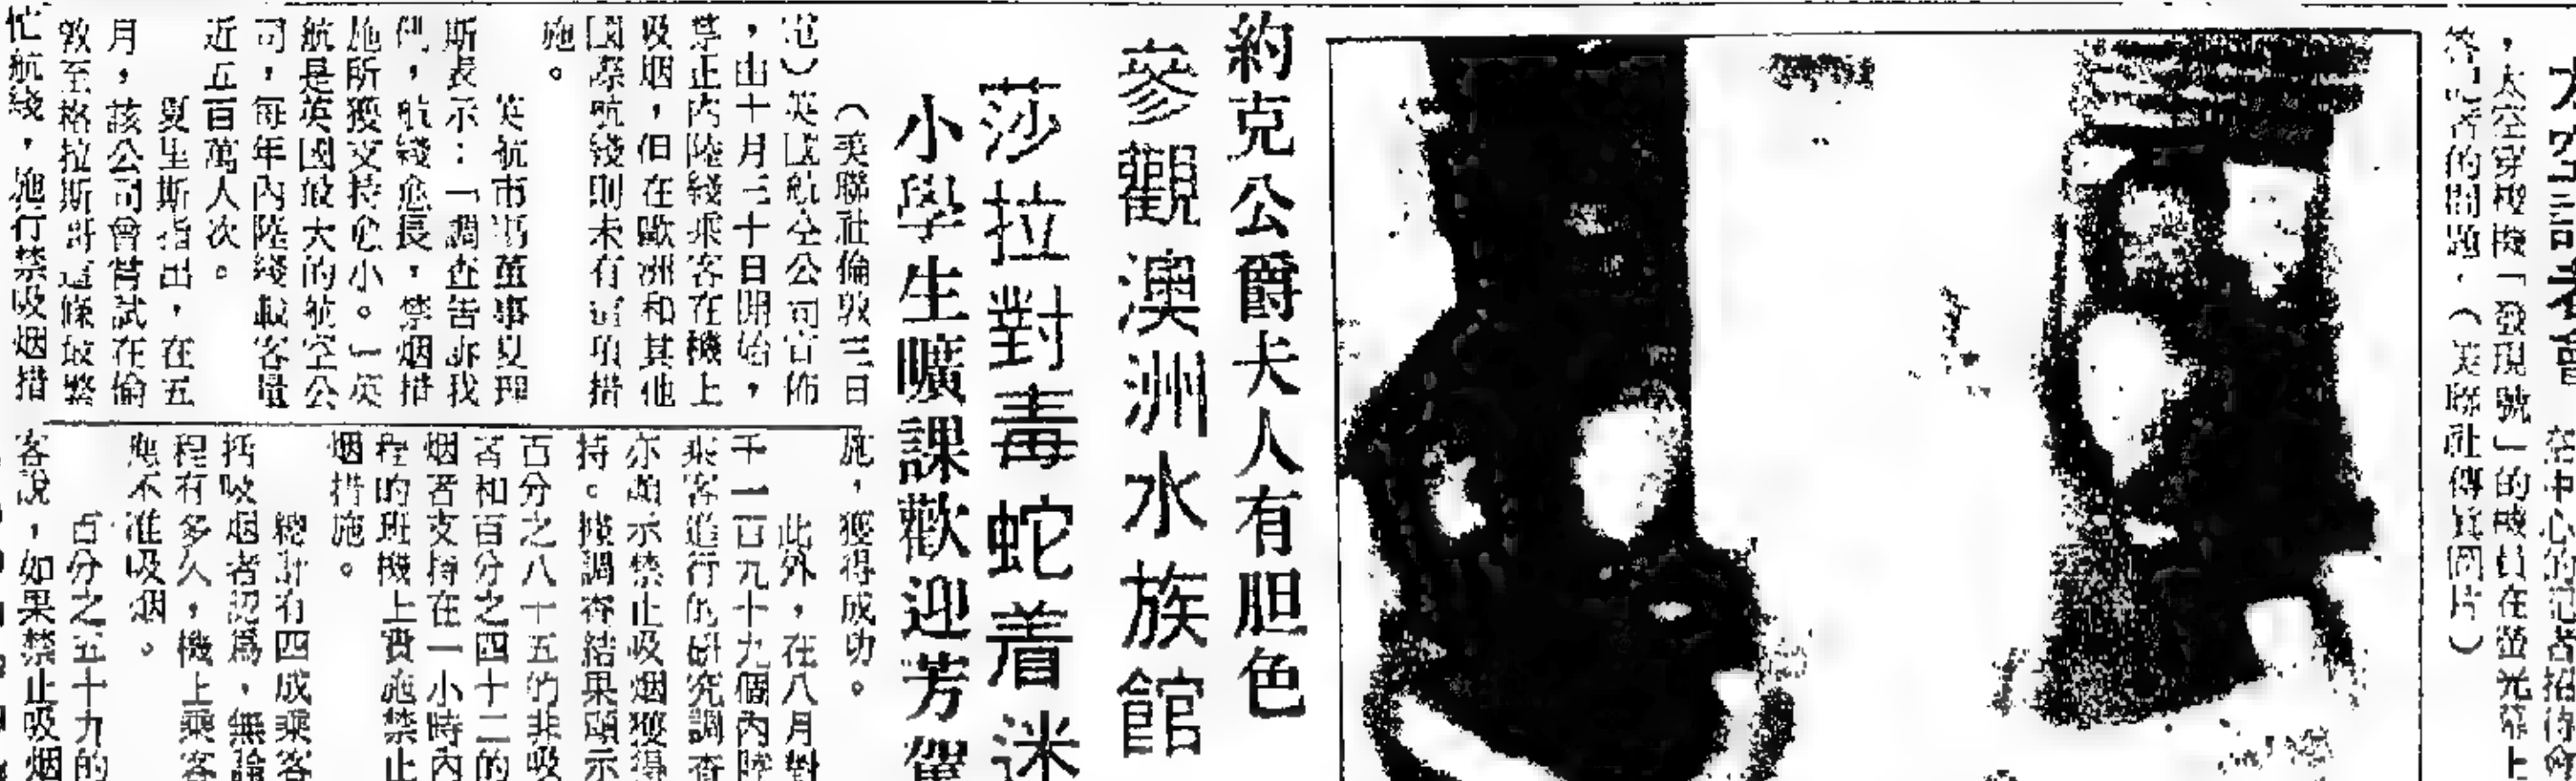 太空記者會
在中心的記者招待會
，太空穿梭機「發現號」的機員在螢光幕上
答記者的問題。（美聯社傳眞圖片）
約克公爵夫人有胆色
參觀澳洲水族館
莎拉對毒蛇着迷
小學生曠課歡迎芳駕
（美聯社倫敦三日
電）英國航空公司宣佈
，由十月三十日開始，
禁止內陸綫乘客在機上
吸烟，但在歐洲和其他
國際航綫則未有這項措
施。
英航市場董事夏理
斯表示：「調查告訴我
們，航綫愈長，禁烟措
施所獲支持愈小。」英
航是英國最大的航空公
司，每年內陸綫載客量
近五百萬人次。
夏里斯指出，在五
月，該公司曾嘗試在倫
敦至格拉斯哥這條最繁
忙航綫，施行禁吸烟措
施，獲得成功。
此外，在八月對
千一百九十九個內陸
乘客進行的研究調查
亦顯示禁止吸烟獲得
持。據調查結果顯示
百分之八十五的非吸
者和百分之四十二的
烟者支持在一小時內
程的班機上實施禁止
烟措施。
總計有四成乘客
括吸烟者認爲，無論
程有多久，機上乘客
應不准吸烟。
百分之五十九的
客說，如果禁止吸烟